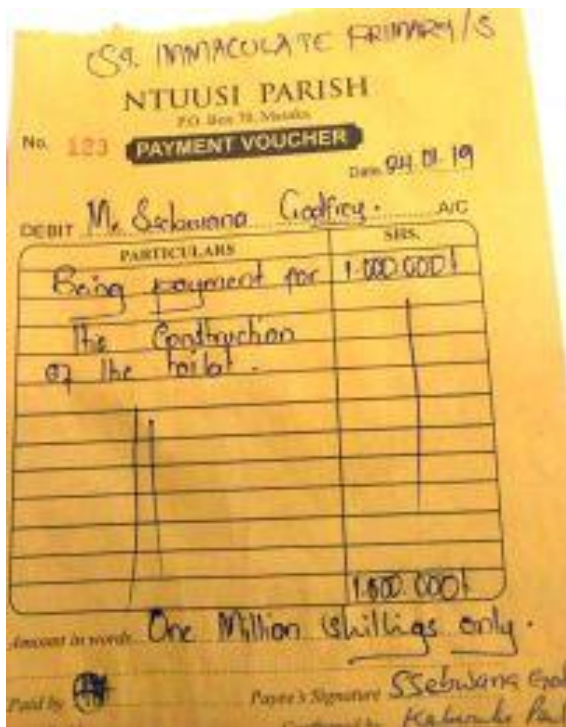 St. IMMACULATE PRIMARY/S
NTUUSI PARISH
P.O. Box 70, Masaka
No. 123 PAYMENT VOUCHER
Date 24.01.19
DEBIT Mr. Ssebwana Godfrey. A/C
PARTICULARS SHS.
Being payment for 1.000.000/
The Construction
of the toilet.
1.000.000/
Amount in words One Million Shillings only.
Paid by Payee's Signature Ssebwana God
Confirmed by